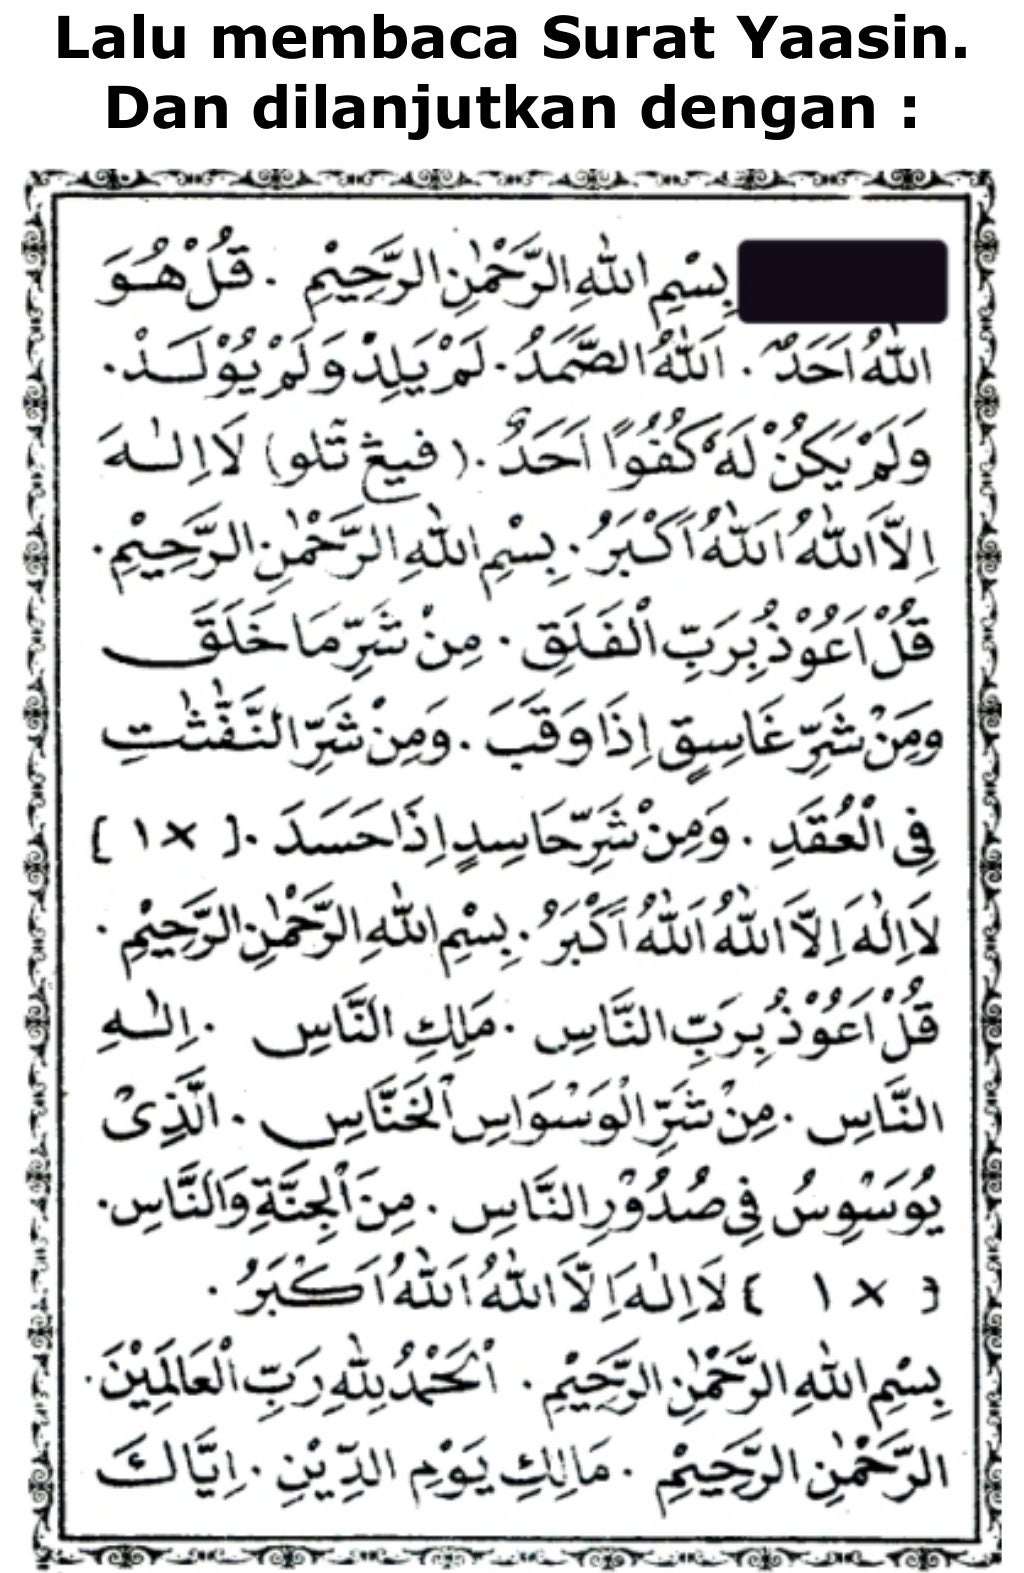 Lalu membaca Surat Yaasin.
Dan dilanjutkan dengan :
بِسْمِ اللهِ الرَّحْمٰنِ الرَّحِيْمِ . قُلْ هُوَ
اللهُ اَحَدٌ . اَللهُ الصَّمَدُ . لَمْ يَلِدْ وَلَمْ يُوْلَدْ .
وَلَمْ يَكُنْ لَهٗ كُفُوًا اَحَدٌ . (فيڠ تلو) لَا اِلٰهَ
اِلَّا اللهُ اَللهُ اَكْبَرُ . بِسْمِ اللهِ الرَّحْمٰنِ الرَّحِيْمِ .
قُلْ اَعُوْذُ بِرَبِّ الْفَلَقِ . مِنْ شَرِّ مَا خَلَقَ
وَمِنْ شَرِّ غَاسِقٍ اِذَا وَقَبَ . وَمِنْ شَرِّ النَّفّٰثٰتِ
فِى الْعُقَدِ . وَمِنْ شَرِّ حَاسِدٍ اِذَا حَسَدَ . [ × ١ ]
لَا اِلٰهَ اِلَّا اللهُ اَللهُ اَكْبَرُ . بِسْمِ اللهِ الرَّحْمٰنِ الرَّحِيْمِ .
قُلْ اَعُوْذُ بِرَبِّ النَّاسِ . مَلِكِ النَّاسِ . اِلٰهِ
النَّاسِ . مِنْ شَرِّ الْوَسْوَاسِ الْخَنَّاسِ . الَّذِىْ
يُوَسْوِسُ فِى صُدُوْرِ النَّاسِ . مِنَ الْجِنَّةِ وَالنَّاسِ .
{ × ١ } لَا اِلٰهَ اِلَّا اللهُ اَللهُ اَكْبَرُ .
بِسْمِ اللهِ الرَّحْمٰنِ الرَّحِيْمِ . اَلْحَمْدُ لِلّٰهِ رَبِّ الْعَالَمِيْنَ .
الرَّحْمٰنِ الرَّحِيْمِ . مَالِكِ يَوْمِ الدِّيْنِ . اِيَّاكَ